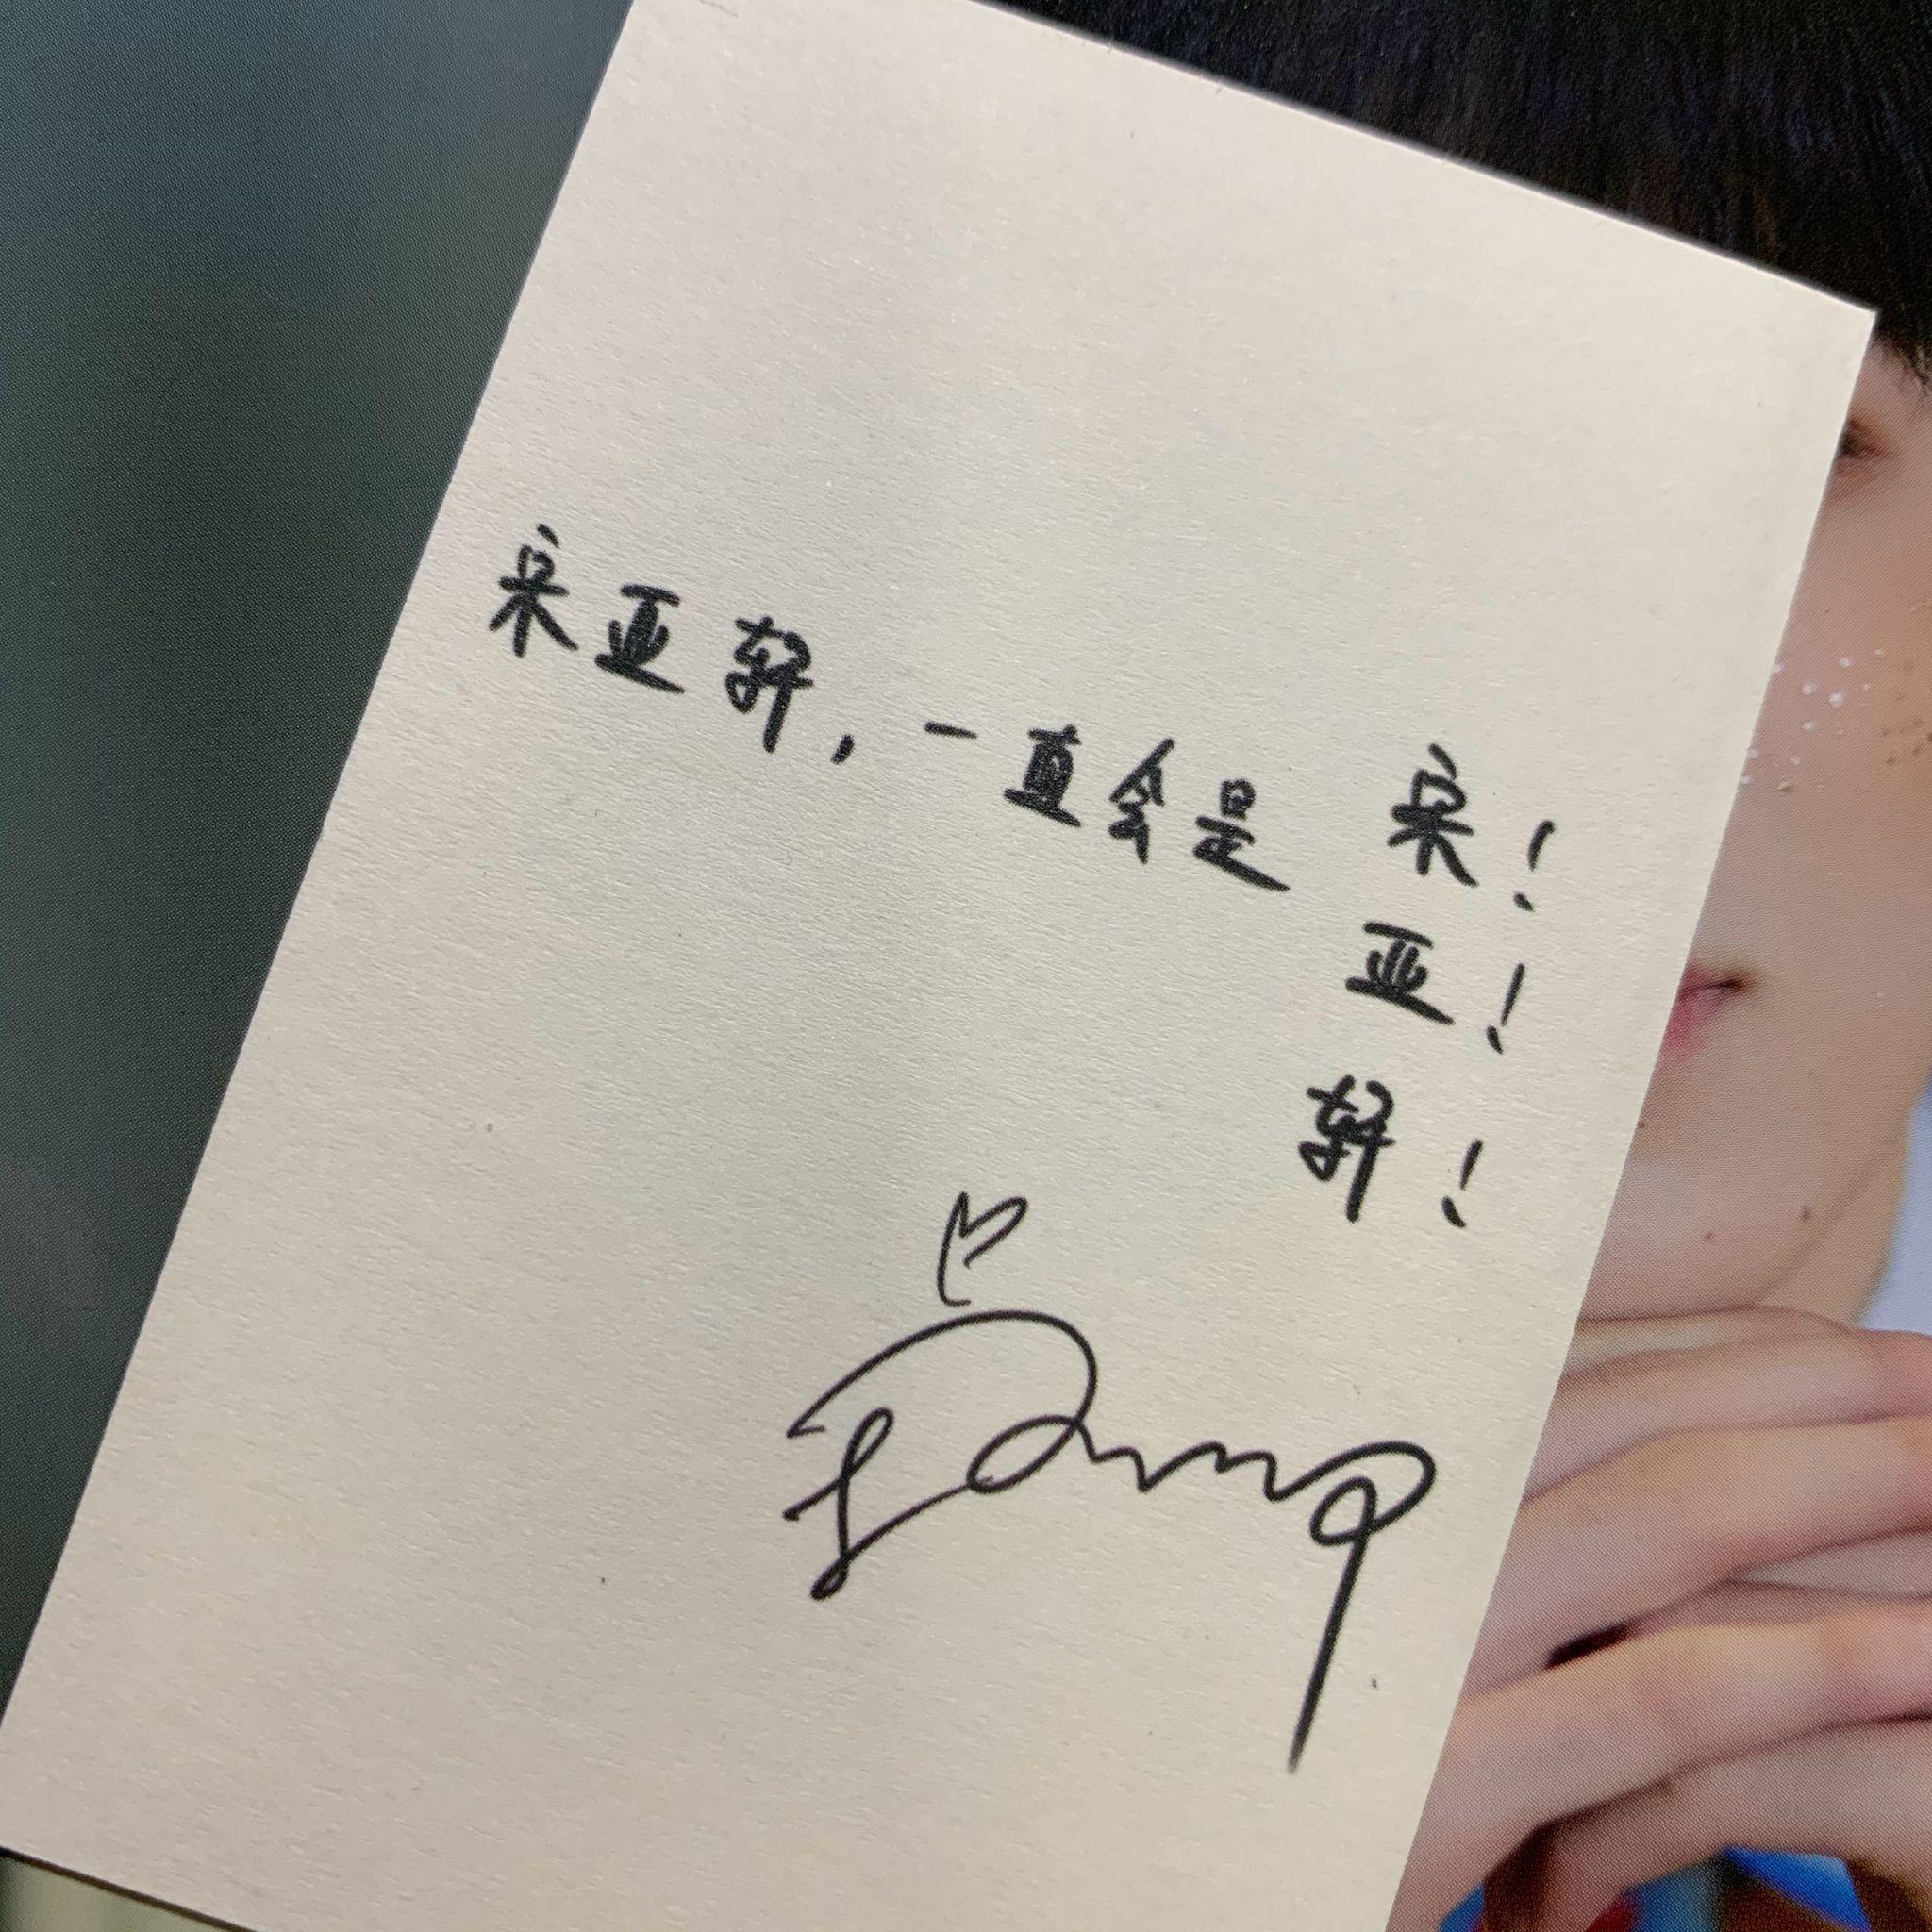 宋亚轩，一直会是 宋！
亚！
轩！